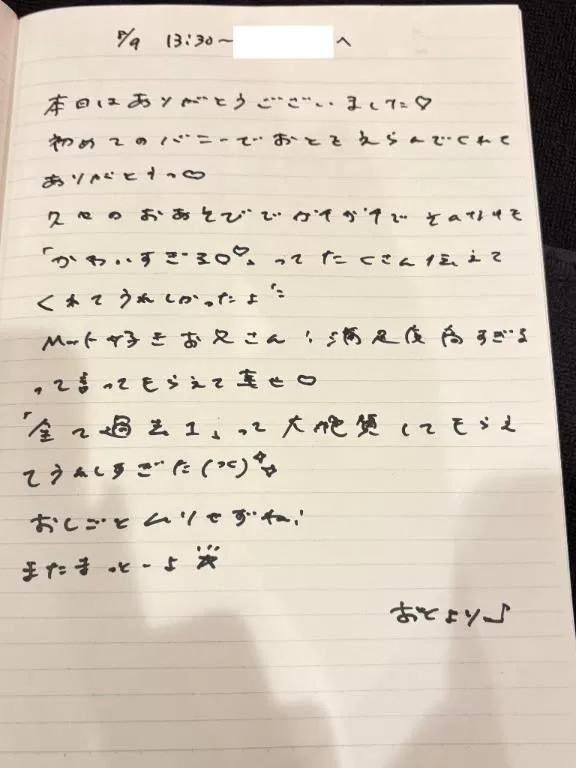 7/9 13:30〜 へ
本日はありがとうございました♡
初めてのバニーでおとをえらんでくれて
ありがとうっ♡
久せのおあそびでガチガチで
「かわいすぎる♡♡」ってたくさん伝えて
くれてうれしかったよ
M〜ト好きお兄さん！満足度高すぎる
って言ってもらえて幸せ♡
「全て過去1」って大絶賛してもらえ
てうれしすぎた
おしごとムリせずね!
またまっとーよ☆
おとより♪